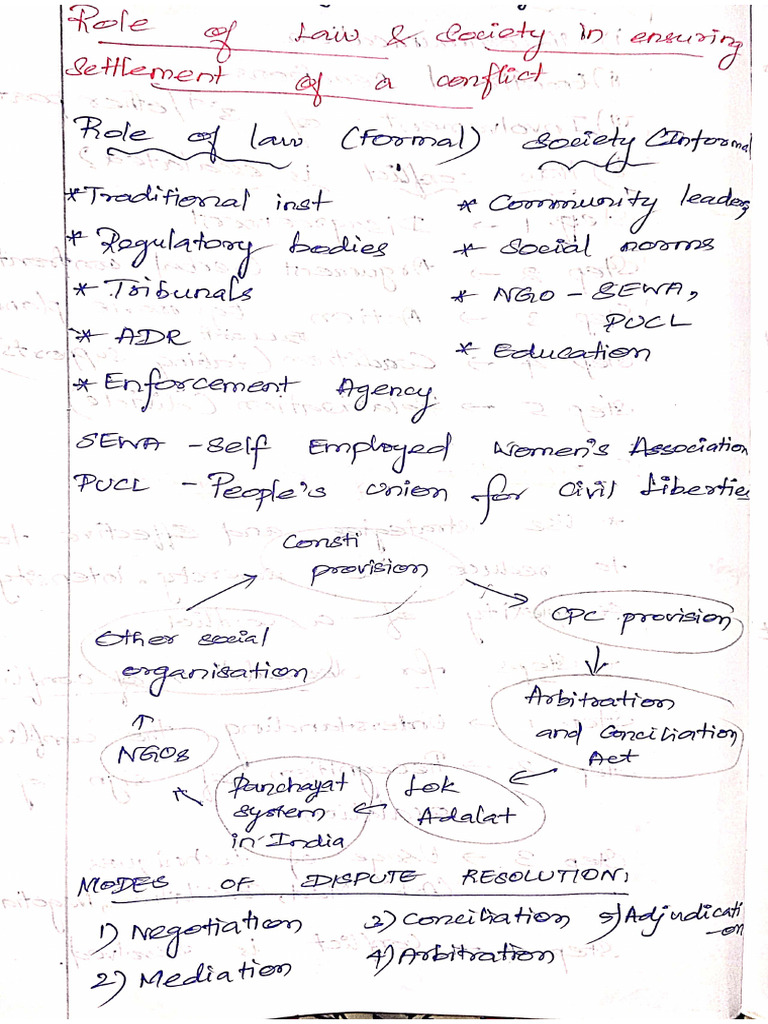 Role of Law & Society in ensuring
Settlement of a conflict
Role of law (Formal) Society (Informal
*Traditional inst
* Regulatory bodies
* Tribunals
* ADR
* Enforcement Agency
* Community leaders
* Social norms
* NGO - SEWA,
PUCL
* Education
SEWA - Self Employed Women's Association
PUCL - People's Union for Civil Liberties
Consti
provision
CPC provision
Arbitration
and Conciliation
Act
Lok
Adalat
Panchayat
system
in India
NGOs
Other social
organisation
MODES OF DISPUTE RESOLUTION:
1) Negotiation
2) Mediation
3) Conciliation
4) Arbitration
5) Adjudicati
-on